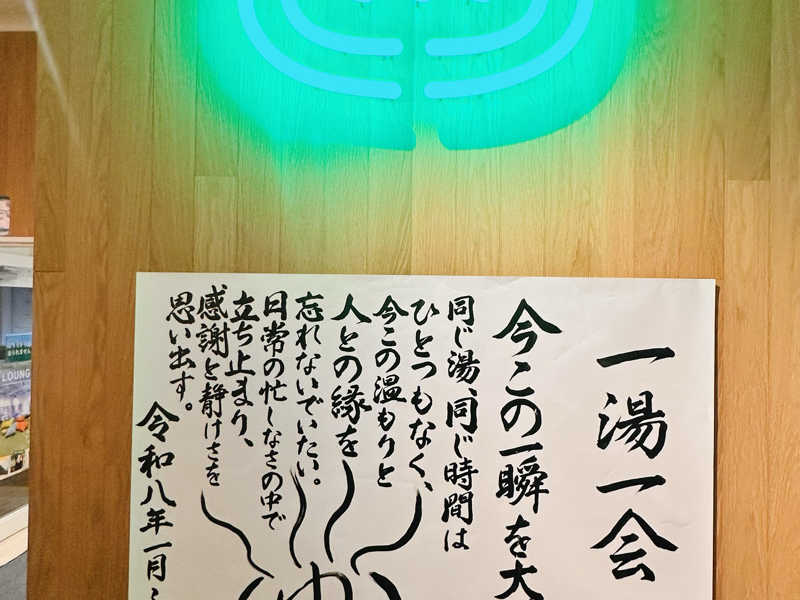 一湯一会
今この一瞬を大
同じ湯、同じ時間は
ひとつもなく、
今この温もりと
人との縁を
忘れないでいたい。
日常の忙しなさの中で
立ち止まり、
感謝と静けさを
思い出す。
令和八年一月
ゆ
LOUNG